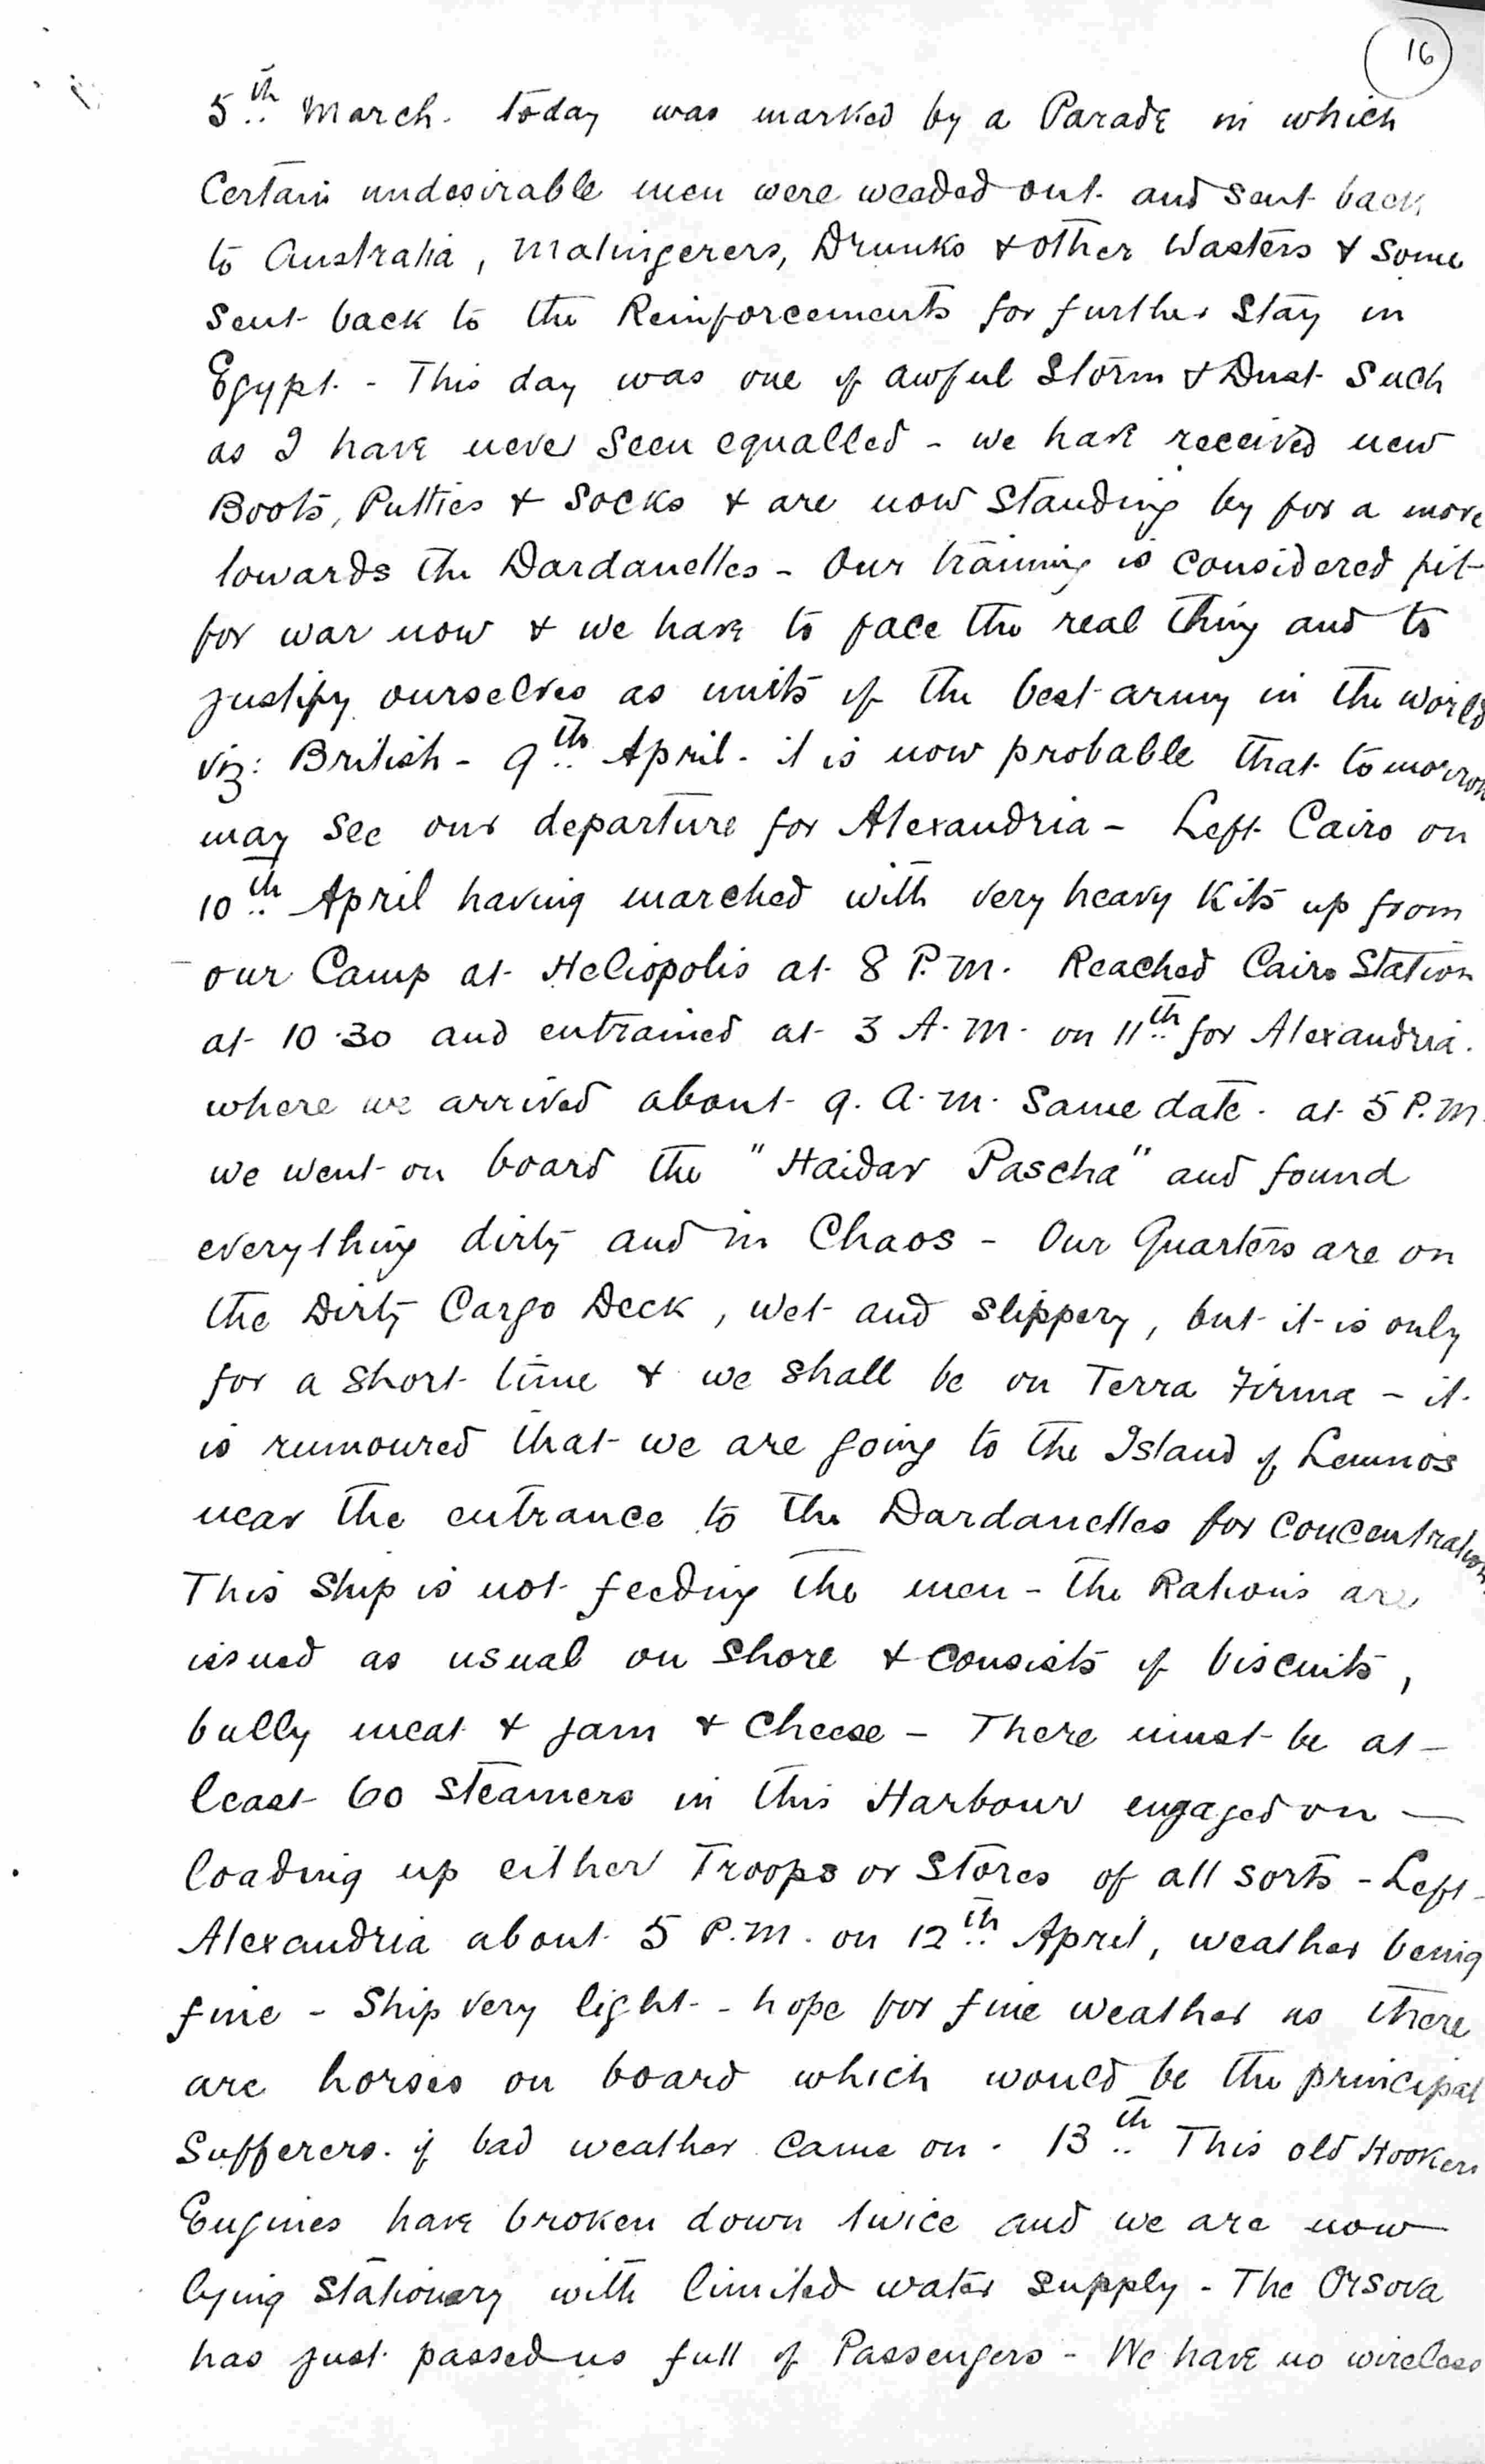 16
5th March. Today was marked by a Parade in which
Certain undesirable men were weeded out and sent back
to Australia, Malingerers, Drunks & other Wasters & Some
Sent back to the Reinforcements for further Stay in
Egypt. - This day was one of awful Storm & Dust Such
as I have never Seen equalled - we have received new
Boots, Putties & Socks & are now Standing by for a move
towards the Dardanelles - Our training is considered fit
for war now & we have to face the real thing and to
justify ourselves as units of the best army in the world
viz: British - 9th April. it is now probable that tomorrow
may See our departure for Alexandria - Left Cairo on
10th April having marched with very heavy Kits up from
our Camp at Heliopolis at 8 P.M. Reached Cairo Station
at 10.30 and entrained at 3 A.M. on 11th for Alexandria.
where we arrived about 9. A.M. Same date. at 5 P.M.
we went on board the "Haidar Pascha" and found
everything dirty and in Chaos - Our Quarters are on
the Dirty Cargo Deck, wet and Slippery, but it is only
for a Short time & we Shall be on Terra Firma - it
is rumoured that we are going to the Island of Lemnos
near the entrance to the Dardanelles for Concentration
This Ship is not feeding the men - the Rations are
issued as usual on Shore & Consists of biscuits,
bully meat & jam & Cheese - There must be at-
least 60 Steamers in this Harbour engaged on -
loading up either Troops or Stores of all sorts - Left
Alexandria about 5 P.M. on 12th April, weather being
fine - Ship very light - hope for fine weather as there
are horses on board which would be the principal
Sufferers. if bad weather Came on. 13th This old Hookers
Engines have broken down twice and we are now
lying Stationary with limited water Supply - The Orsova
has just passed us full of Passengers - We have no wireless